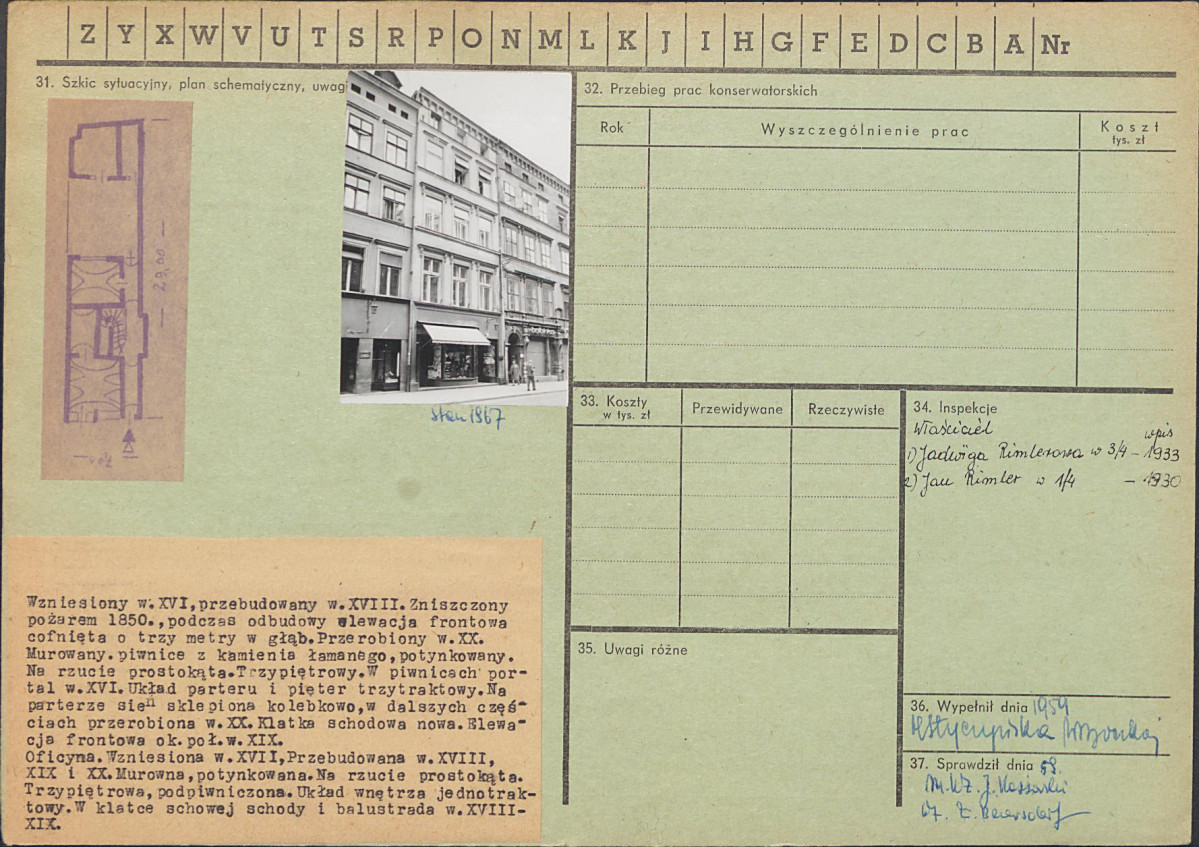 Z Y X W V U T S R P O N M L K J I H G F E D C B A Nr
31. Szkic sytuacyjny, plan schematyczny, uwagi
29,00
stan 1967
Wzniesiony w.XVI,przebudowany w.XVIII.Zniszczony
pożarem 1850.,podczas odbudowy elewacja frontowa
cofnięta o trzy metry w głąb.Przerobiony w.XX.
Murowany.piwnice z kamienia łamanego,potynkowany.
Na rzucie prostokąta.Trzypiętrowy.W piwnicach por-
tal w.XVI.Układ parteru i pięter trzytraktowy.Na
parterze sień sklepiona kolebkowo,w dalszych częś-
ciach przerobiona w.XX.Klatka schodowa nowa.Elewa-
cja frontowa ok.poł.w.XIX.
Oficyna.Wzniesiona w.XVII,Przebudowana w.XVIII,
XIX i XX.Murowna,potynkowana.Na rzucie prostokąta.
Trzypiętrowa,podpiwniczona.Układ wnętrza jednotrak-
towy.W klatce schowej schody i balustrada w.XVIII-
XIX.
32. Przebieg prac konserwatorskich
Rok Wyszczególnienie prac Koszt
tys. zł
33. Koszty
w tys. zł
Przewidywane Rzeczywiste
34. Inspekcje
Właściciel wpis
1) Jadwiga Rimlerowa w 3/4 - 1933
2) Jan Rimler w 1/4 - 1930
35. Uwagi różne
36. Wypełnił dnia 1959
37. Sprawdził dnia